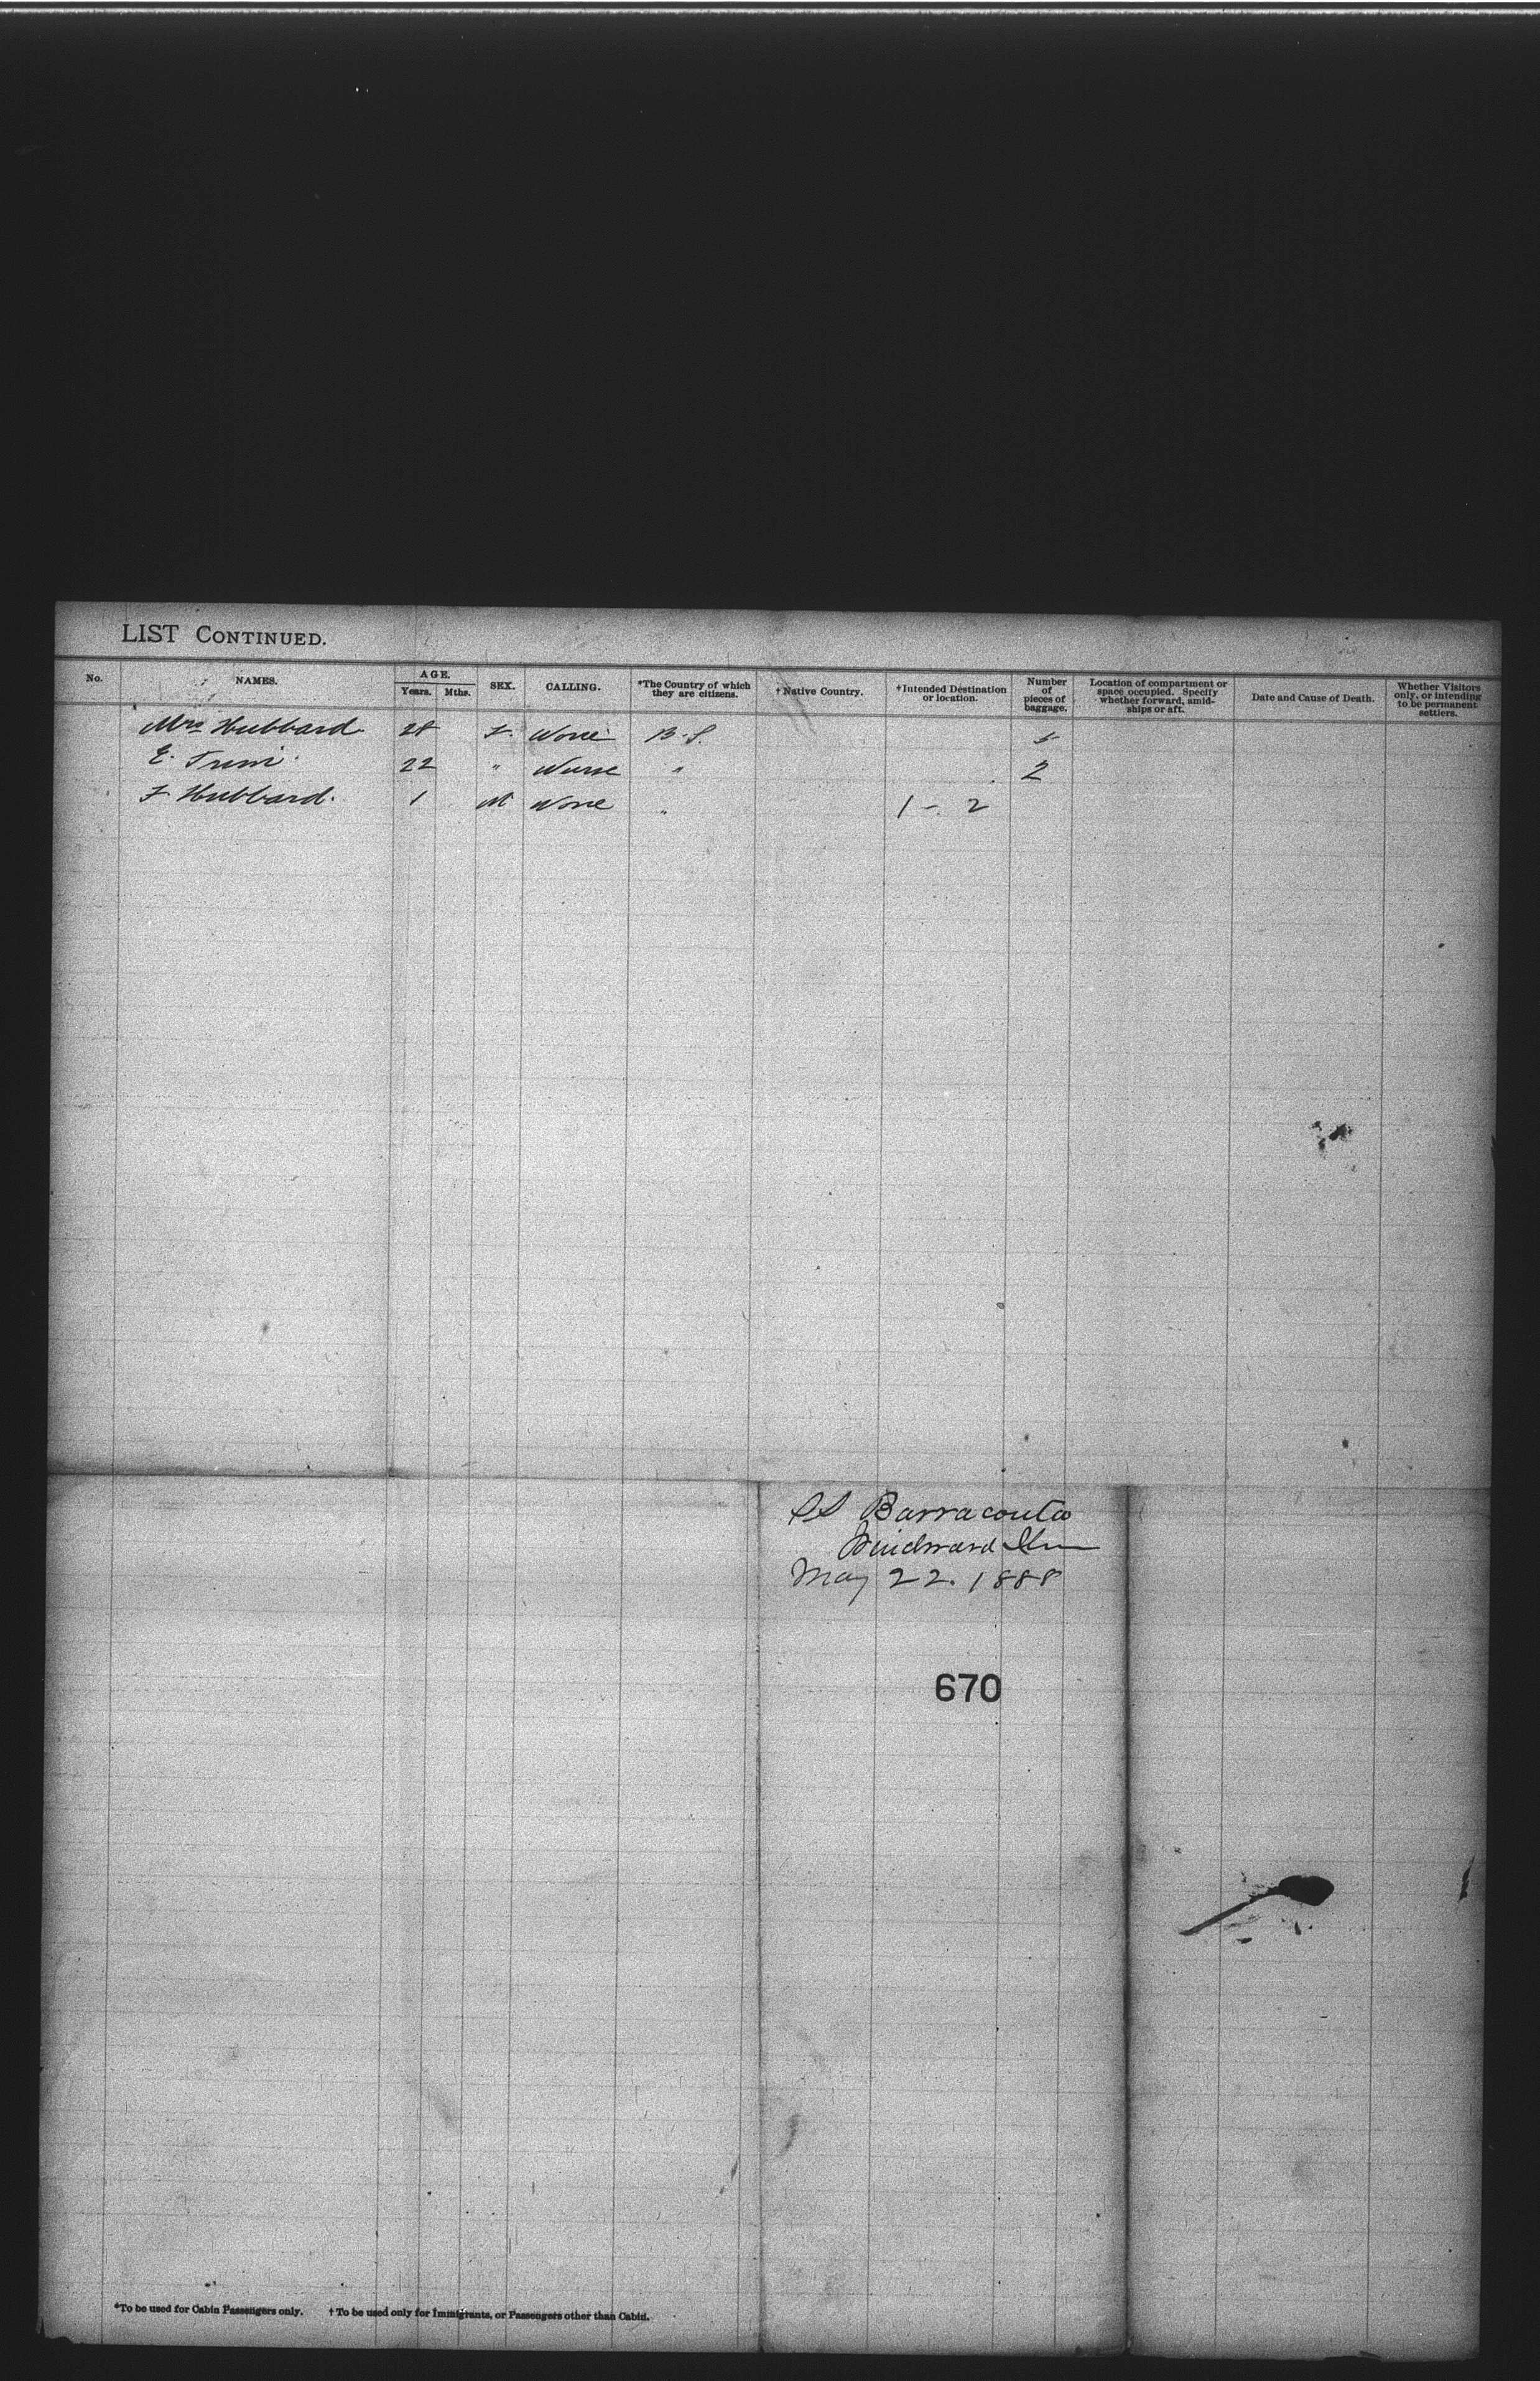 LIST CONTINUED.
No. NAMES. AGE. Years. Mths. SEX. CALLING. *The Country of which they are citizens. †Native Country. †Intended Destination or location. Number of pieces of baggage. Location of compartment or space occupied. Specify whether forward, amidships or aft. Date and Cause of Death. Whether Visitors only, or intending to be permanent settlers.
Mrs Hubbard 28 F. None B.S.
E. 22 " Nurse " 2
F Hubbard. 1 M None " 1 - 2
SS Barracouta
Windward
May 22. 1888
670
*To be used for Cabin Passengers only. †To be used only for Immigrants, or Passengers other than Cabin.